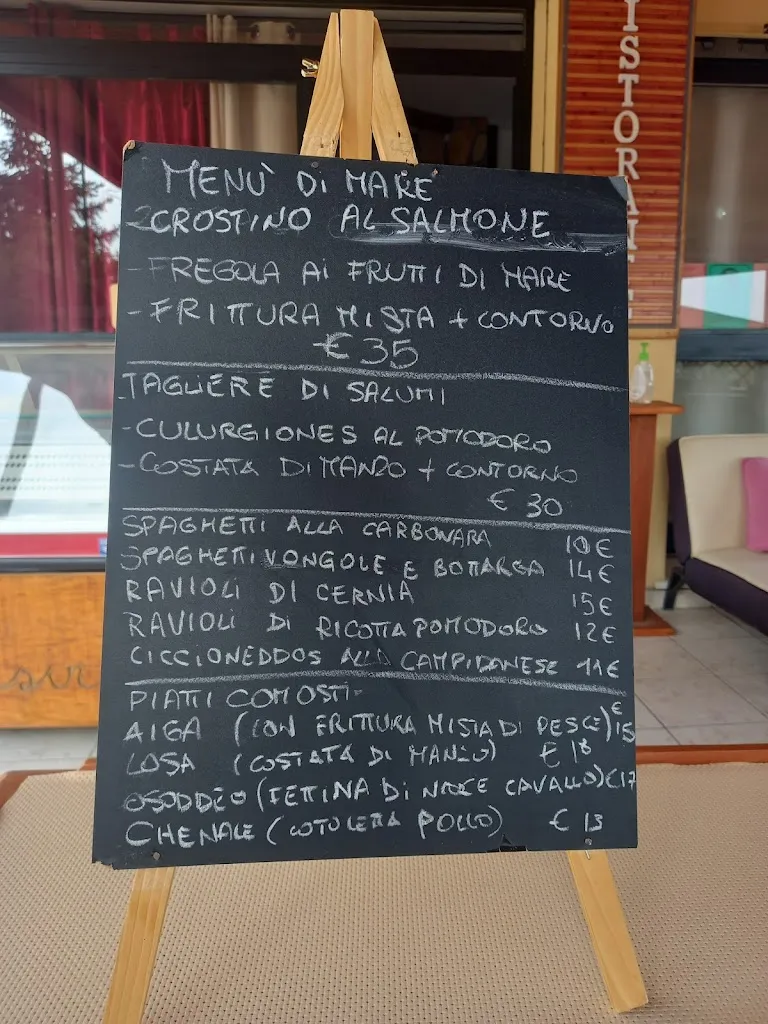 RISTORANTE
MENÙ DI MARE
2CROSTINO AL SALMONE
- FREGOLA AI FRUTTI DI MARE
- FRITTURA MISTA + CONTORNO
€ 35
TAGLIERE DI SALUMI
- CULURGIONES AL POMODORO
- COSTATA DI MANZO + CONTORNO
€ 30
SPAGHETTI ALLA CARBONARA 10€
SPAGHETTI VONGOLE E BOTTARGA 14€
RAVIOLI DI CERNIA 15€
RAVIOLI DI RICOTTA POMODORO 12€
CICCIONEDDOS ALLA CAMPIDANESE 11€
PIATTI COMOSTI
AIGA (CON FRITTURA MISTA DI PESCE) €15
LOSA (COSTATA DI MANZO) € 18
OSODDEO (FETTINA DI NOCE CAVALLO) €17
CHENALE (COTOLETTA POLLO) € 13